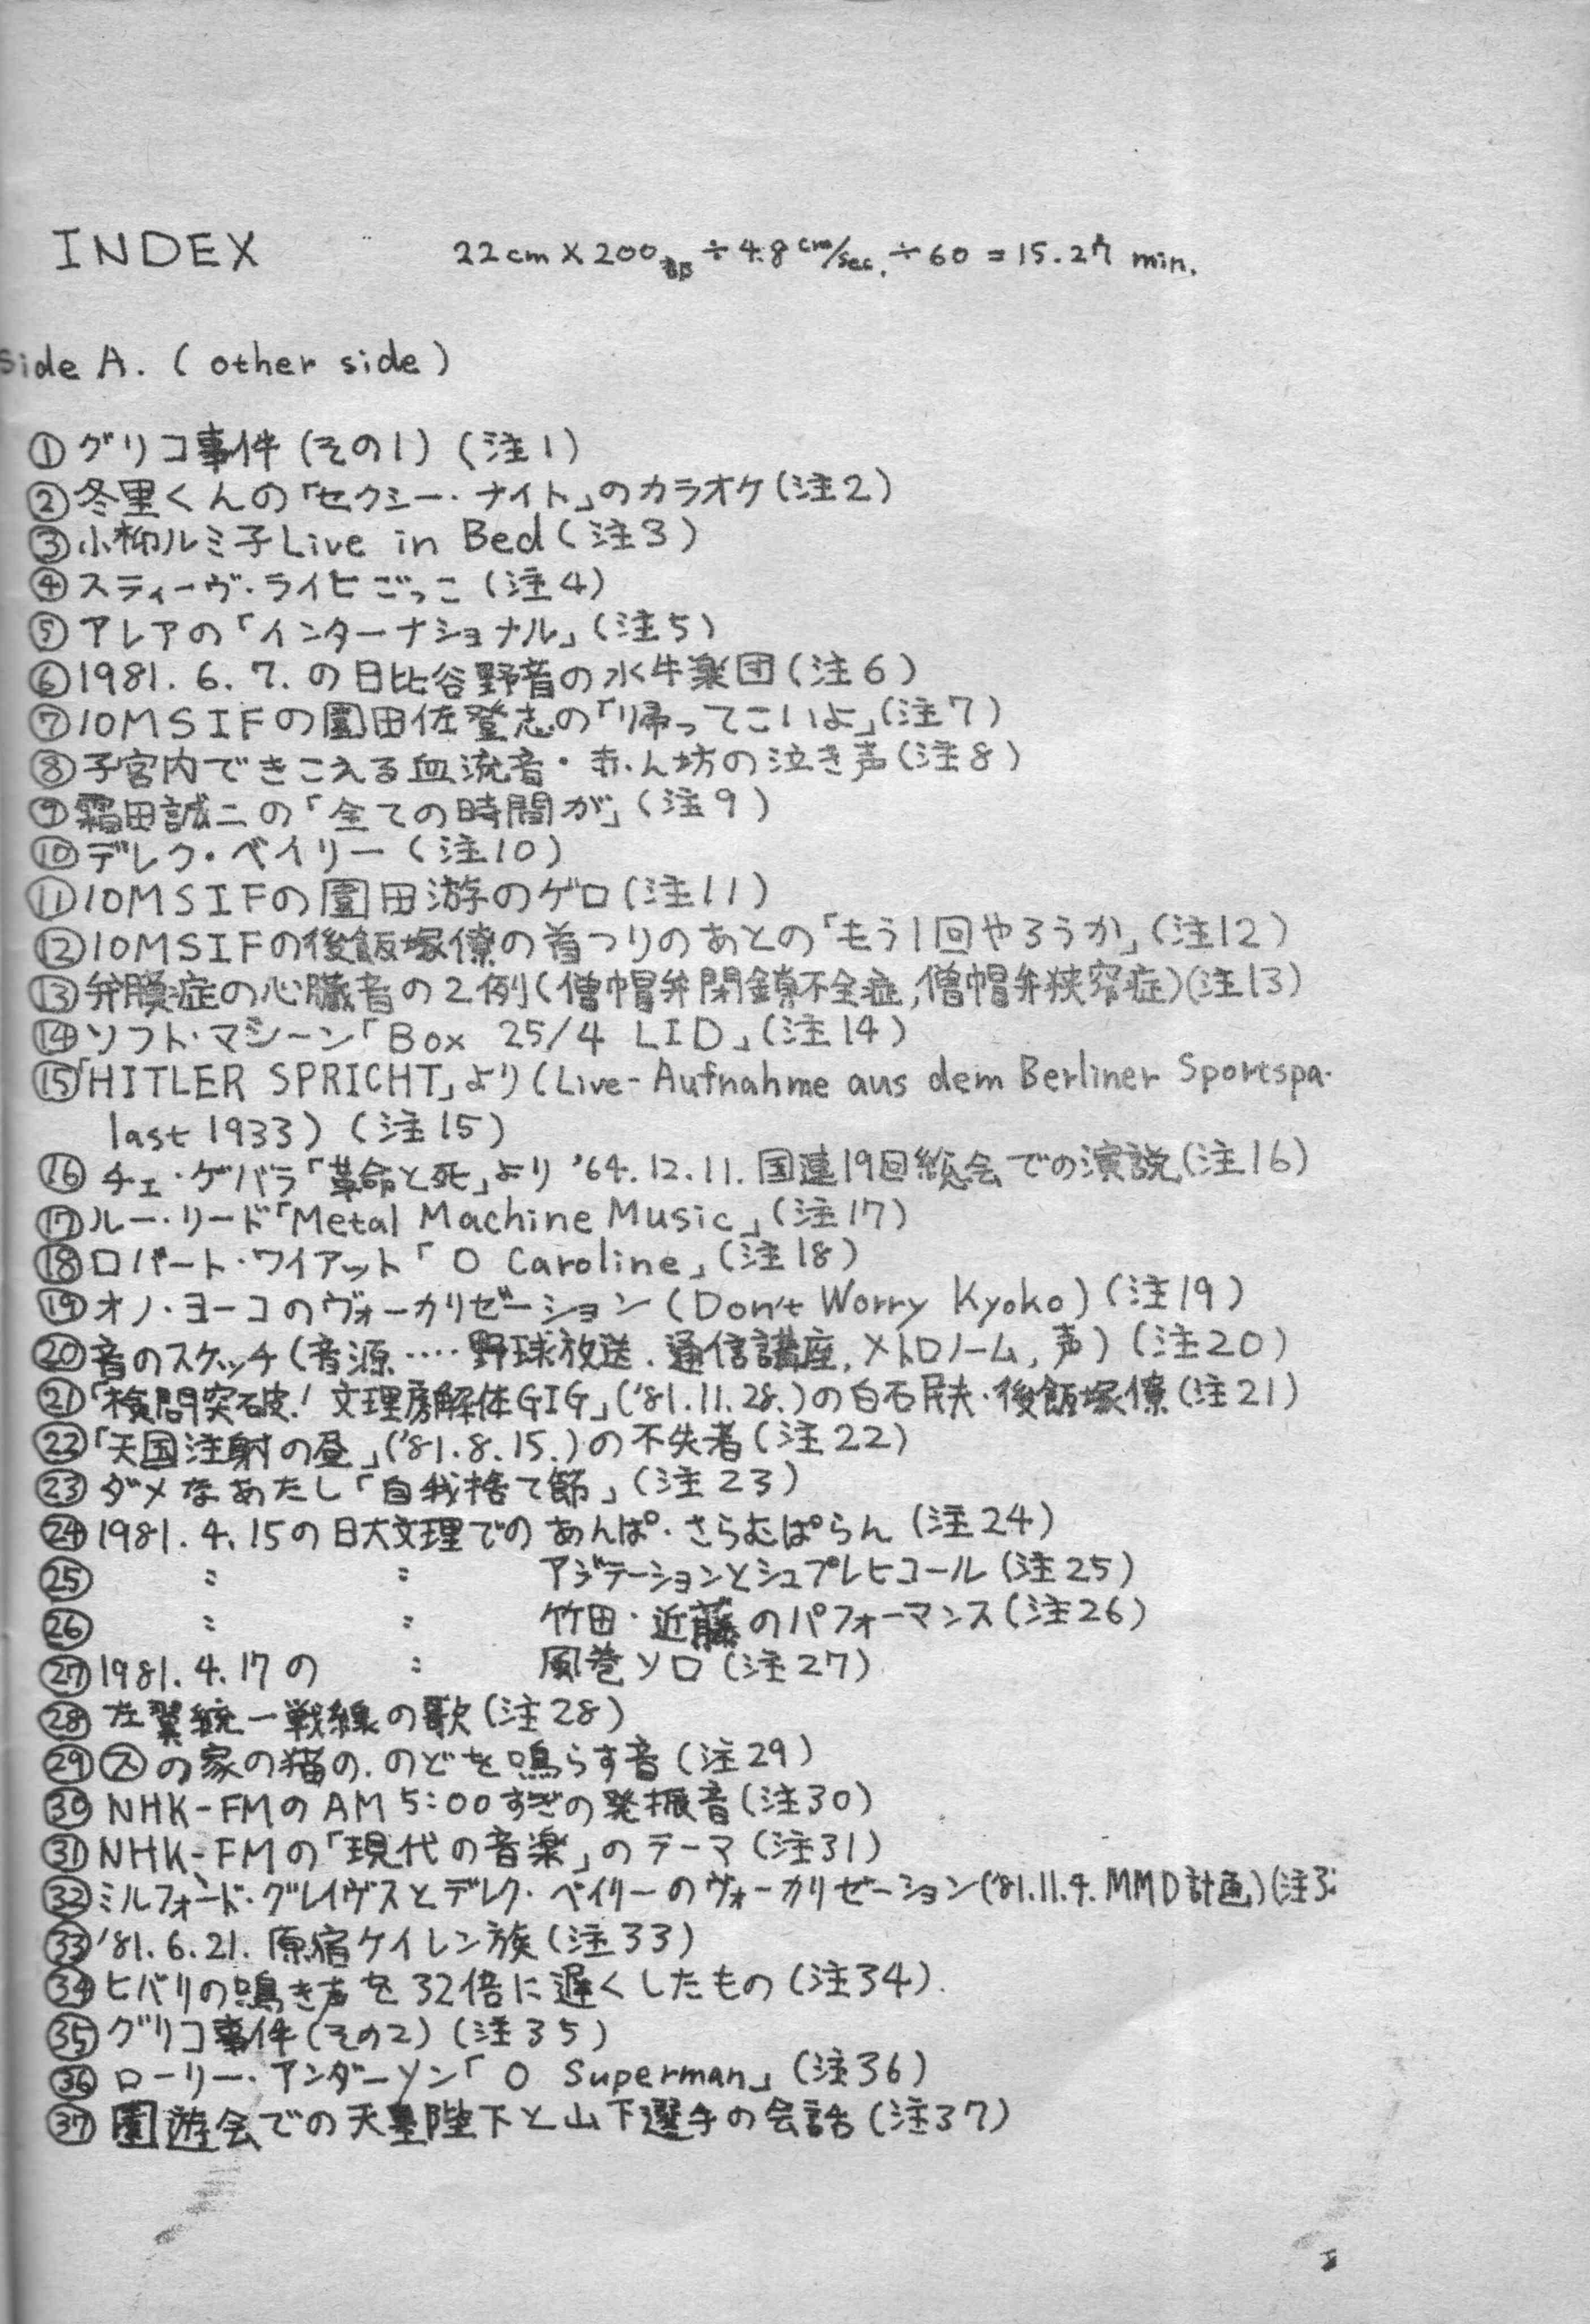 INDEX 22cm×200部÷4.8cm/sec.÷60=15.27 min.
Side A. (other side)
①グリコ事件(その1)(注1)
②冬里くんの「セクシー・ナイト」のカラオケ(注2)
③小柳ルミ子Live in Bed(注3)
④スティーヴ・ライヒごっこ(注4)
⑤アレアの「インターナショナル」(注5)
⑥1981.6.7.の日比谷野音の水牛楽団(注6)
⑦10MSIFの園田佐登志の「帰ってこいよ」(注7)
⑧子宮内できこえる血流音・赤ん坊の泣き声(注8)
⑨霜田誠二の「全ての時間が」(注9)
⑩デレク・ベイリー(注10)
⑪10MSIFの園田游のゲロ(注11)
⑫10MSIFの後飯塚僚の首つりのあとの「もう1回やろうか」(注12)
⑬弁膜症の心臓音の2例(僧帽弁閉鎖不全症,僧帽弁狭窄症)(注13)
⑭ソフト・マシーン「Box 25/4 LID」(注14)
⑮「HITLER SPRICHT」より(Live-Aufnahme aus dem Berliner Sportspa-
last 1933)(注15)
⑯チェ・ゲバラ「革命と死」より '64.12.11.国連19回総会での演説(注16)
⑰ルー・リード「Metal Machine Music」(注17)
⑱ロバート・ワイアット「O Caroline」(注18)
⑲オノ・ヨーコのヴォーカリゼーション(Don't Worry Kyoko)(注19)
⑳音のスケッチ(音源‥‥野球放送.通信講座,メトロノーム,声)(注20)
㉑「検問突破!文理房解体GIG」('81.11.28.)の白石民夫・後飯塚僚(注21)
㉒「天国注射の昼」('81.8.15.)の不失者(注22)
㉓ダメなあたし「自我捨て節」(注23)
㉔1981.4.15の日大文理でのあんぱ・さらむぱらん(注24)
㉕ 〃 〃 アジテーションとシュプレヒコール(注25)
㉖ 〃 〃 竹田・近藤のパフォーマンス(注26)
㉗1981.4.17の 〃 風巻ソロ(注27)
㉘左翼統一戦線の歌(注28)
㉙㋜の家の猫の.のどを鳴らす音(注29)
㉚NHK-FMのAM5:00すぎの発振音(注30)
㉛NHK-FMの「現代の音楽」のテーマ(注31)
㉜ミルフォード・グレイヴスとデレク・ベイリーのヴォーカリゼーション('81.11.4.MMD計画)(注3
㉝'81.6.21.原宿ケイレン族(注33)
㉞ヒバリの鳴き声を32倍に遅くしたもの(注34).
㉟グリコ事件(その2)(注35)
㊱ローリー・アンダーソン「O Superman」(注36)
㊲園遊会での天皇陛下と山下選手の会話(注37)